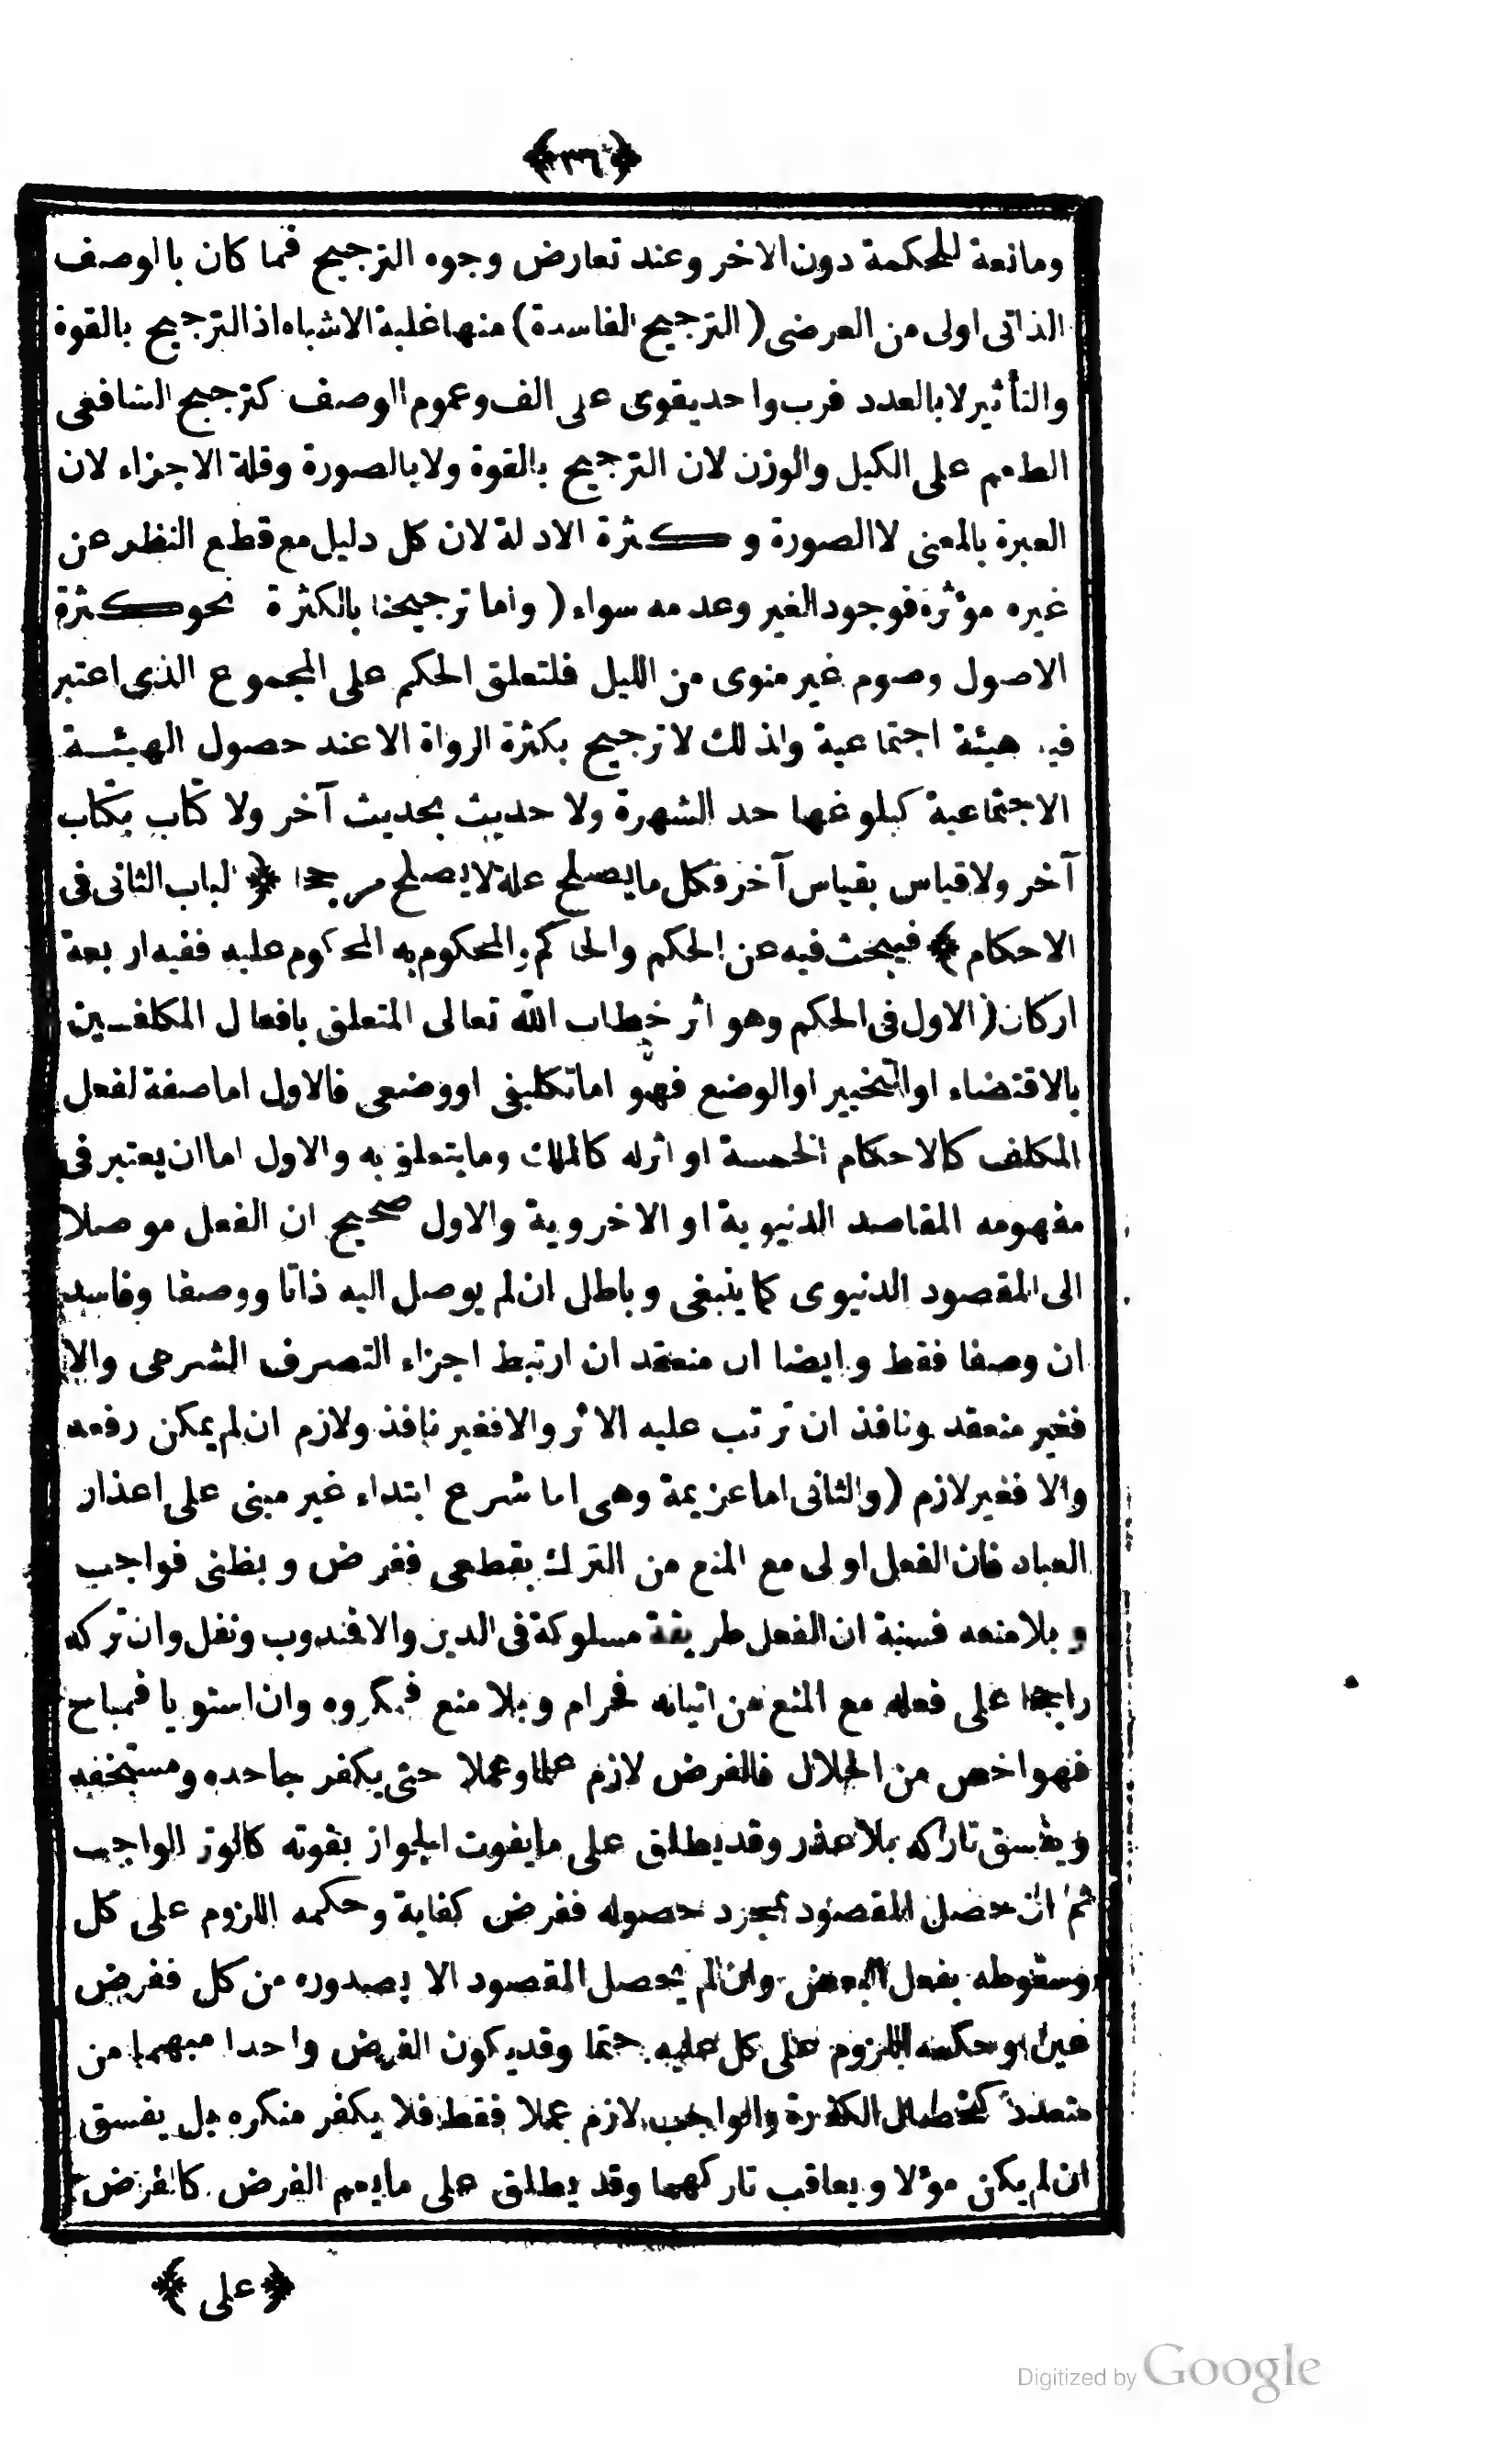 ﴿٣٦﴾
ومانعة للحكمة دون الاخر وعند تعارض وجوه الترجيح فما كان بالوصف
الذاتى اولى من العرضى ( الترجيح الفاسدة ) منها غلبة الاشباه اذ الترجيح بالقوة
والتأثير لا بالعدد فرب واحد يقوى على الف وعموم الوصف كترجيح الشافعى
الطعم على الكيل والوزن لان الترجيح بالقوة ولا بالصورة وقلة الاجزاء لان
العبرة بالمعنى لا الصورة وكثرة الادلة لان كل دليل مع قطع النظر عن
غيره مؤثرة فوجود الغير وعدمه سواء ( واما ترجيحنا بالكثرة نحو كثرة
الاصول وصوم غير منوى من الليل فلتعلق الحكم على المجموع الذى اعتبر
فيه هيئة اجتماعية ولذلك لا ترجيح بكثرة الرواة الا عند حصول الهيئة
الاجتماعية كبلوغها حد الشهرة ولا حديث بحديث آخر ولا كتاب بكتاب
آخر ولا قياس بقياس آخر فكل ما يصلح علة لا يصلح مرجحا ﴿ الباب الثانى فى
الاحكام ﴾ فيبحث فيه عن الحكم والحاكم والمحكوم به المحكوم عليه ففيه اربعة
اركان ( الاول فى الحكم وهو اثر خطاب الله تعالى المتعلق بافعال المكلفين
بالاقتضاء او التخيير او الوضع فهو اما تكليفى او وضعى فالاول اما صفة لفعل
المكلف كالاحكام الخمسة او اثر له كالملك وما يتعلق به والاول اما ان يعتبر فى
مفهومه المقاصد الدنيوية او الاخروية والاول صحيح ان الفعل موصلا
الى المقصود الدنيوى كما ينبغى وباطل ان لم يوصل اليه ذاتا ووصفا وفاسد
ان وصفا فقط وايضا اں منعقد ان ارتبط اجزاء التصرف الشرعى والا
فغير منعقد ونافذ ان ترتب عليه الاثر والا فغير نافذ ولازم ان لم يمكن رفعه
والا فغير لازم ( والثانى اما عزيمة وهى اما شرع ابتداء غير مبنى على اعذار
العباد فان الفعل اولى مع المنع من الترك بقطعى ففرض وبظنى فواجب
وبلا منعه فسنة ان الفعل طريقة مسلوكة فى الدين والا فندوب ونفل وان تركه
راجحا على فعله مع المنع من اتيانه فحرام وبلا منع فمكروه وان استويا فمباح
فهو اخص من الحلال فالفرض لازم علما وعملا حتى يكفر جاحده ومستخفه
ويفسق تاركه بلا عذر وقد يطلق على ما يفوت الجواز بفوته كالوتر الواجب
ثم ان حصل المقصود بمجرد حصوله ففرض كفاية وحكمه اللزوم على كل
وسقوطه بفعل البعض وان لم يحصل المقصود الا بصدوره من كل ففرض
عين وحكمه اللزوم على كل عليه حتما وقد يكون الفرض واحدا مبهما من
متعدد كخصال الكفارة والواجب لازم عملا فقط فلا يكفر منكره بل يفسق
ان لم يكن مؤلا ويعاقب تاركهما وقد يطلق على ما يعم الفرض كالفرض
﴿ على ﴾
Digitized by Google